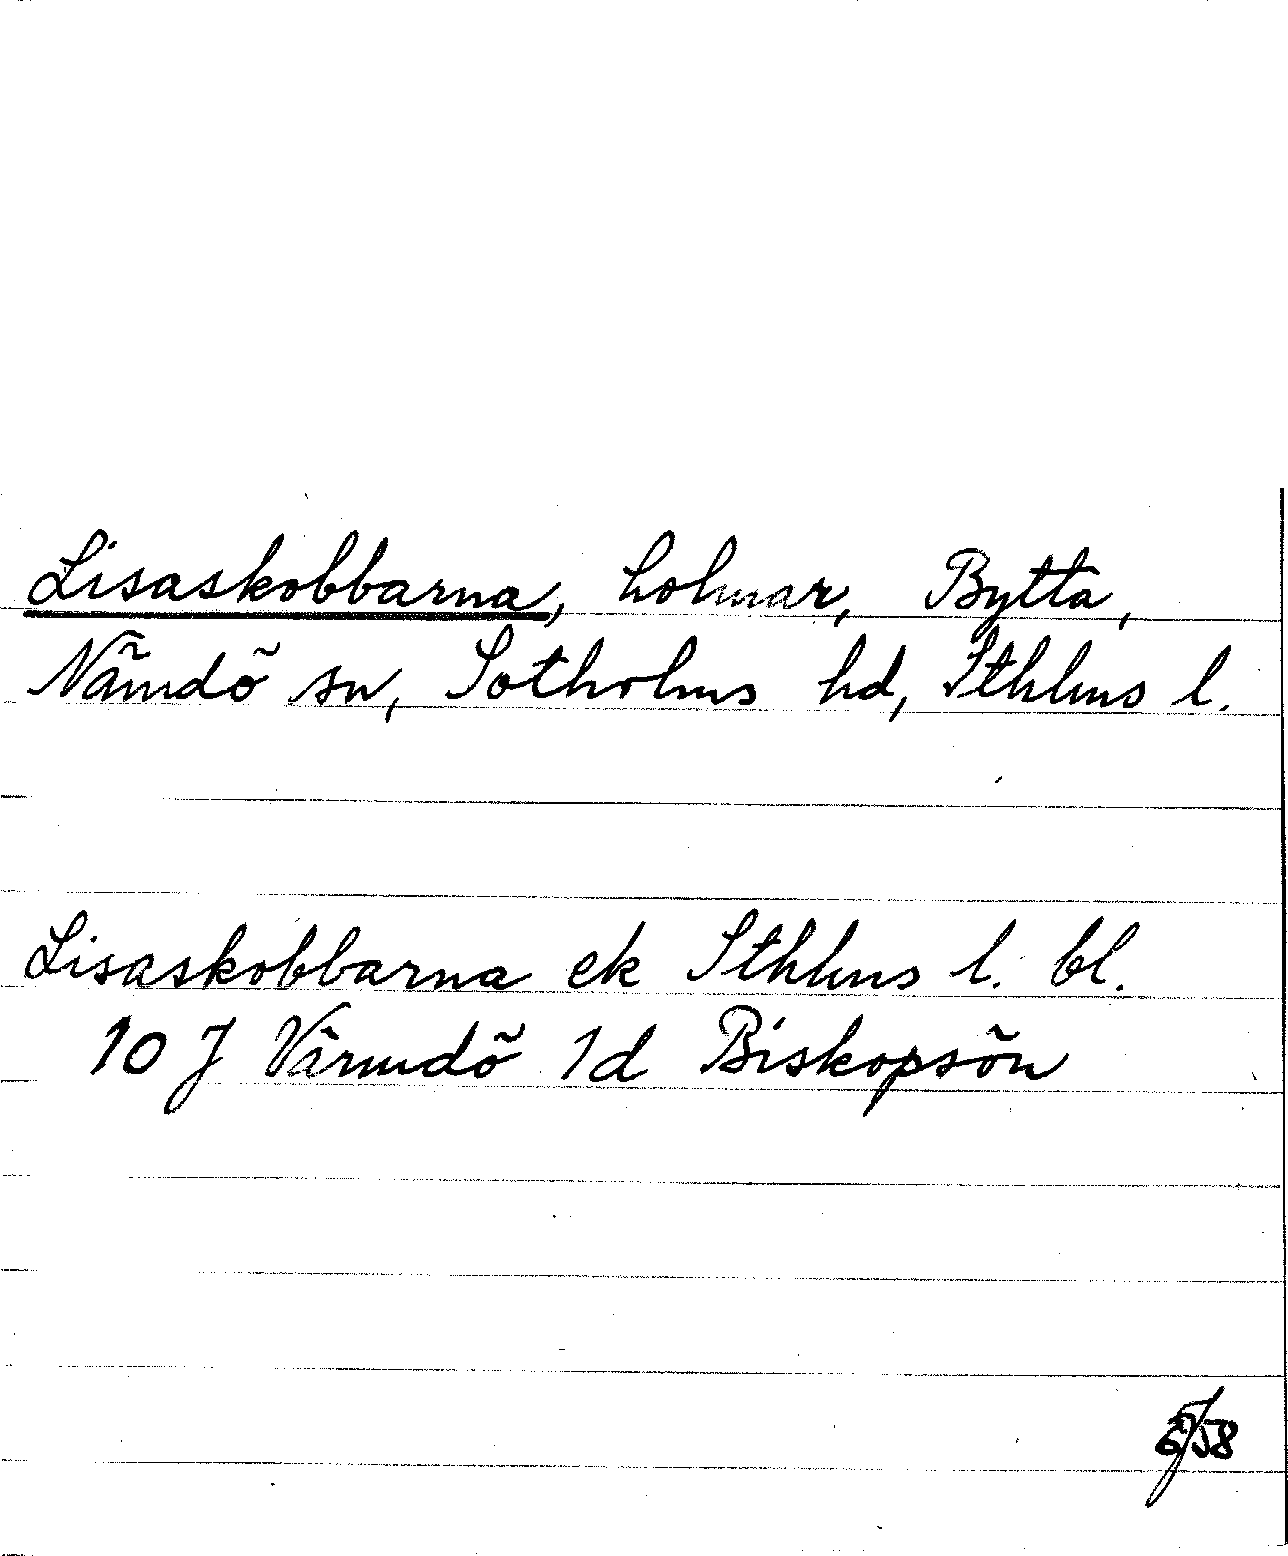 Lisaskobbarna, holmar, Bytta,
Nämdö sn, Sotholms hd, Sthlms l.
Lisaskobbarna ek Sthlms l. bl.
10 J Värmdö 1d Biskopsön